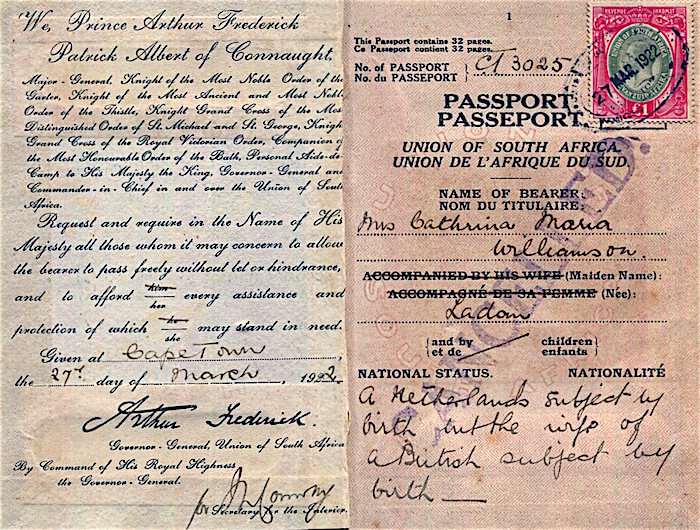 We, Prince Arthur Frederick
Patrick Albert of Connaught,
Major-General, Knight of the Most Noble Order of the
Garter, Knight of the Most Ancient and Most Noble
Order of the Thistle, Knight Grand Cross of the Most
Distinguished Order of St. Michael and St. George, Knigh
Grand Cross of the Royal Victorian Order, Companion o
the Most Honourable Order of the Bath, Personal Aide-de
Camp to His Majesty the King, Governor-General and
Commander-in-Chief in and over the Union of South
Africa.
Request and require in the Name of His
Majesty all those whom it may concern to allow
the bearer to pass freely without let or hindrance,
and to afford him her every assistance and
protection of which he she may stand in need.
Given at Cape Town,
the 27th day of March, 1922.
Arthur Frederick.
Governor-General, Union of South Africa
By Command of His Royal Highness
the Governor-General.
for
Secretary for the Interior.
1
This Passport contains 32 pages.
Ce Passeport contient 32 pages.
No. of PASSPORT
No. du PASSEPORT
CT 3025
REVENUE INKOMST
£1
27 MAR 1922
PASSPORT.
PASSEPORT.
UNION OF SOUTH AFRICA.
UNION DE L'AFRIQUE DU SUD.
NAME OF BEARER.
NOM DU TITULAIRE.
Mrs Cathrina Maria
Williamson.
ACCOMPANIED BY HIS WIFE (Maiden Name):
ACCOMPAGNÉ DE SA FEMME (Née):
Ladom
and by children
et de enfants
NATIONAL STATUS. NATIONALITÉ
A Netherlands subject by
birth but the wife of
a British subject by
birth —
CANCELLED.